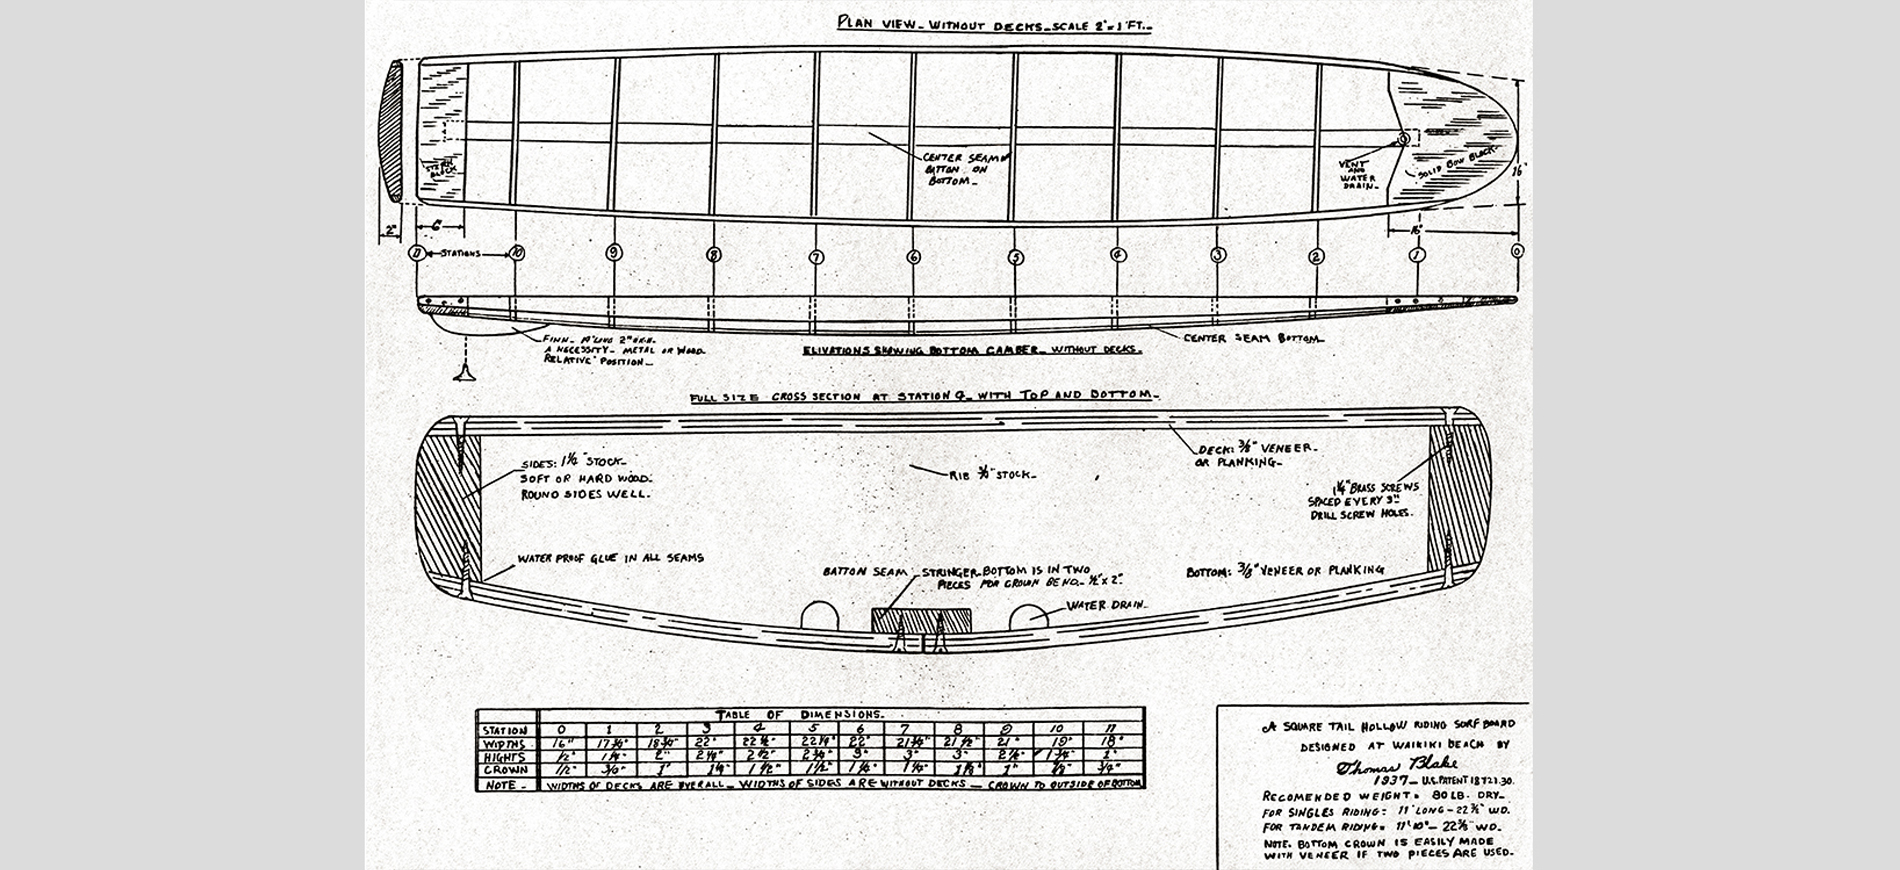 PLAN VIEW - WITHOUT DECKS - SCALE 2" = 1 FT.
STERN BLOCK
CENTER SEAM
BATTON ON
BOTTOM.
VENT
AND
WATER
DRAIN.
SOLID BOW BLOCK.
16"
2"
6"
16"
11 STATIONS 10 9 8 7 6 5 4 3 2 1 0
FINN - LONG 2"
A NECESSITY - METAL OR WOOD.
RELATIVE POSITION
ELIVATIONS SHOWING BOTTOM CAMBER - WITHOUT DECKS.
CENTER SEAM BOTTOM
FULL SIZE CROSS SECTION AT STATION 4 - WITH TOP AND BOTTOM -
SIDES: 1 1/4" STOCK
SOFT OR HARD WOOD.
ROUND SIDES WELL.
RIB STOCK
DECK: 3/8" VENEER
OR PLANKING
1 1/4" BRASS SCREWS
SPACED EVERY 3"
DRILL SCREW HOLES.
WATER PROOF GLUE IN ALL SEAMS
BATTON SEAM STRINGER - BOTTOM IS IN TWO
PIECES FOR CROWN BEND - 1/2" x 2"
WATER DRAIN
BOTTOM: 3/8" VENEER OR PLANKING
TABLE OF DIMENSIONS.
STATION 0 1 2 3 4 5 6 7 8 9 10 11
WIDTHS 16" 17 3/4" 18 3/4" 22" 22 1/2" 22 1/4" 22" 21 3/4" 21 1/2" 21" 19" 18"
HIGHTS 1/2" 1 1/4" 2" 2 1/4" 2 1/2" 2 3/4" 3" 3" 3" 1 3/4" 1"
CROWN 1/2" 1" 1 1/4" 1 1/2" 1 1/2" 1" 3/4"
NOTE - WIDTHS OF DECKS ARE OVERALL - WIDTHS OF SIDES ARE WITHOUT DECKS - CROWN TO OUTSIDE OF BOTTOM
A SQUARE TAIL HOLLOW RIDING SURF BOARD
DESIGNED AT WAIKIKI BEACH BY
Thomas Blake
1937 - U.S. PATENT 1872130.
RECOMENDED WEIGHT = 80 LB. DRY -
FOR SINGLES RIDING = 11' LONG - WD.
FOR TANDEM RIDING = 11' 10" - WD.
NOTE. BOTTOM CROWN IS EASILY MADE
WITH VENEER IF TWO PIECES ARE USED.